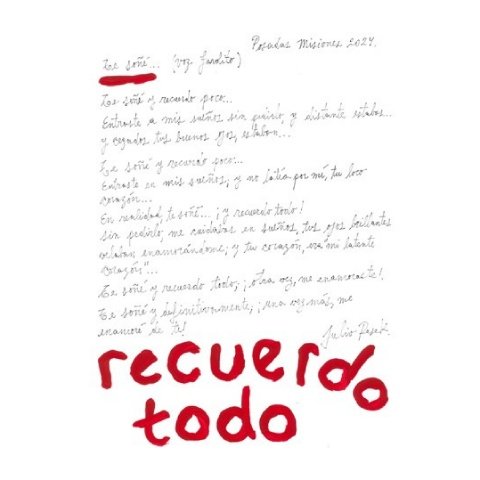 Posadas Misiones 2024.
Te soñé... (voz Jardito)
Te soñé y recuerdo poco...
Entraste a mis sueños sin pedirlo, y distante estabas...
y cegados tus buenos ojos, estaban...
Te soñé y recuerdo poco...
Entraste en mis sueños, y no latía por mí, tu loco
corazón...
En realidad, te soñé... ¡y recuerdo todo!
sin pedirlo, me cuidabas en sueños, tus ojos brillantes
estaban enamorándome; y tu corazón, era mi latente
corazón"...
Te soñé y recuerdo todo; ¡otra vez, me enamoraste!
Te soñé y definitivamente, ¡una vez más, me
enamoré de te!
Julio
recuerdo
todo